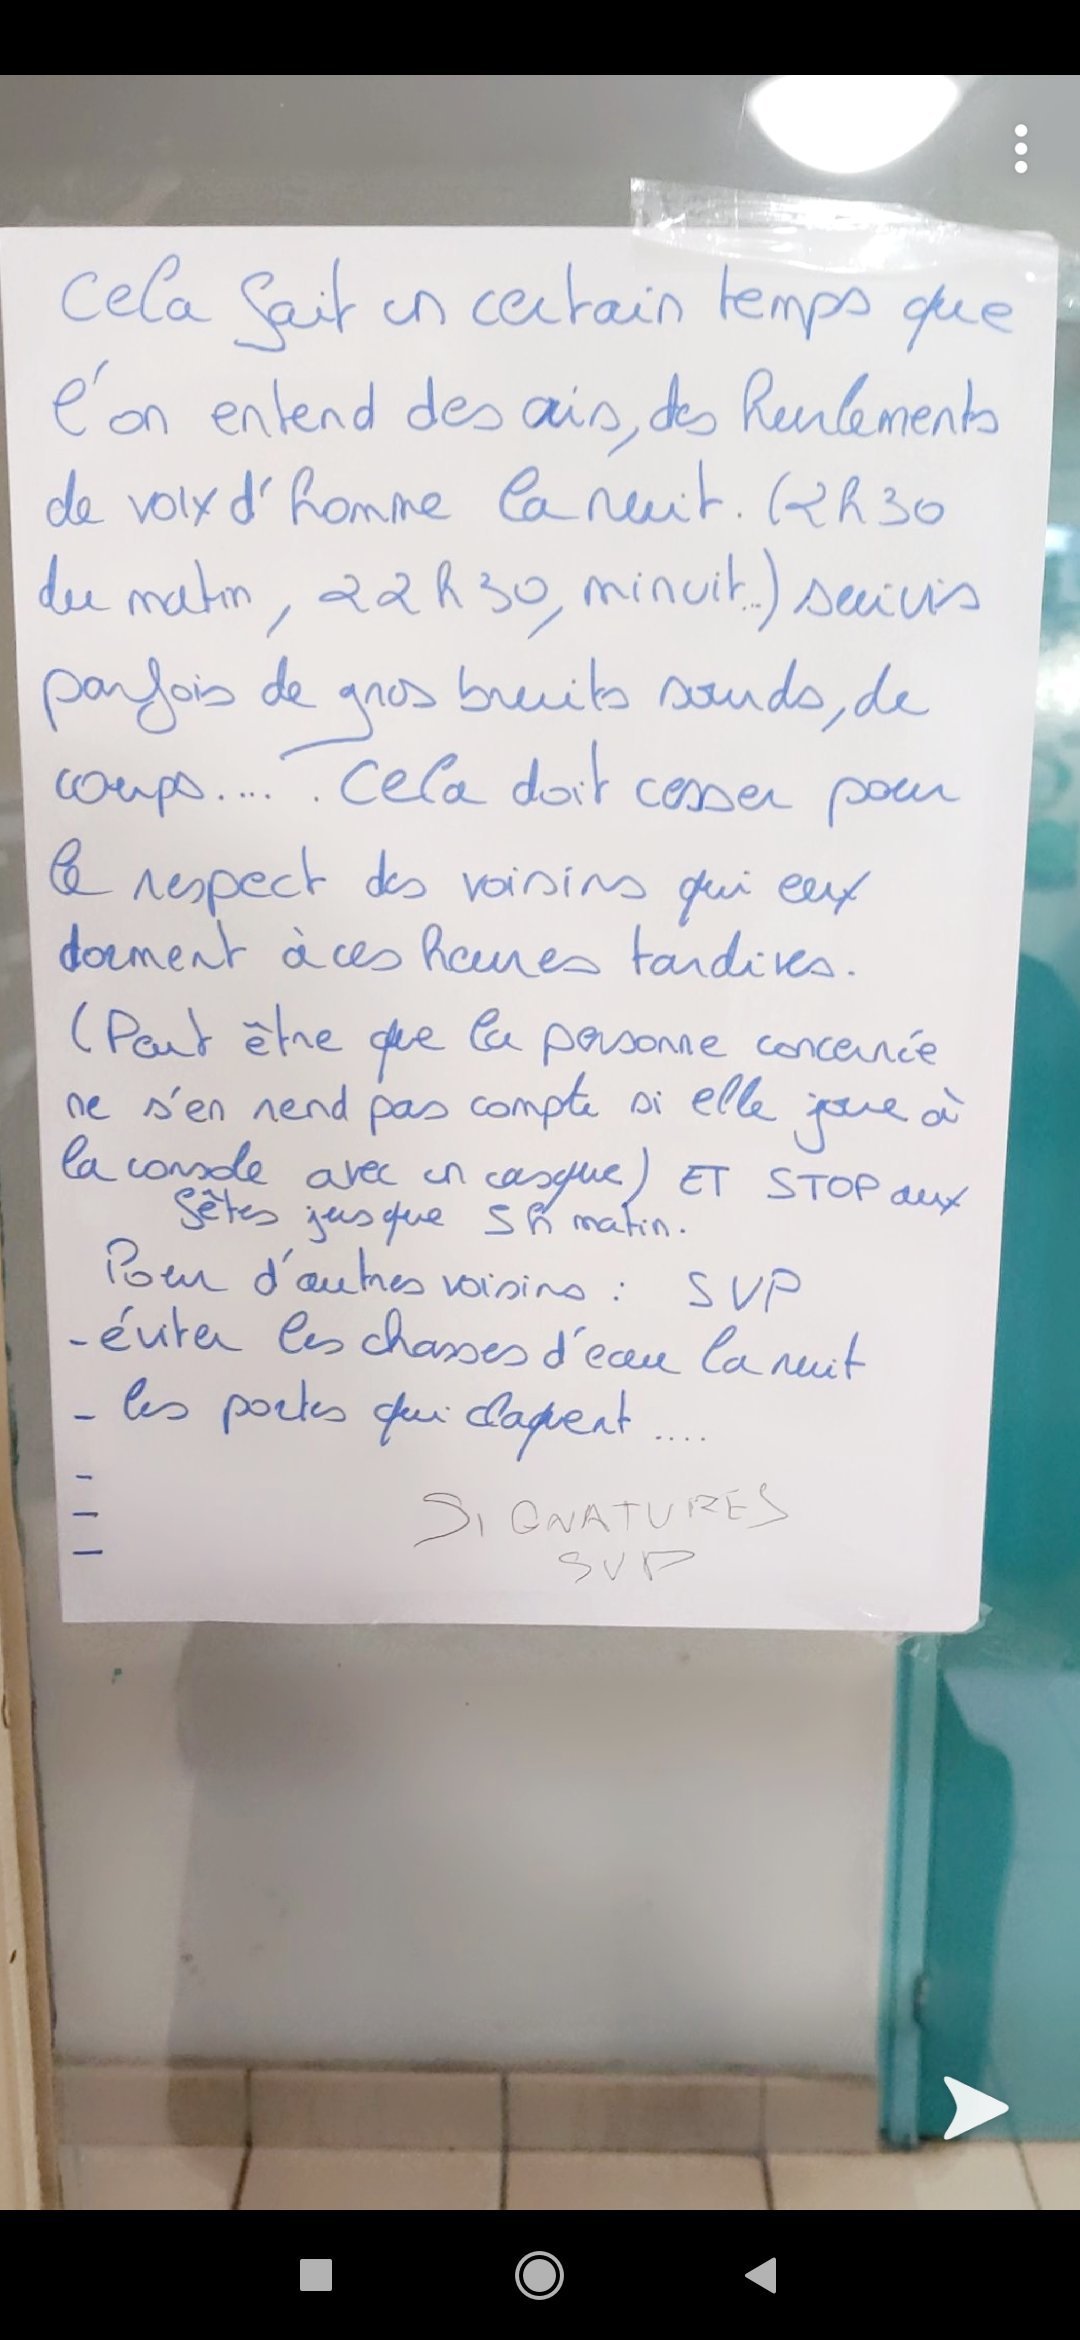 Cela fait un certain temps que
l'on entend des cris, des hurlements
de voix d'homme la nuit. (2h30
du matin, 22h30, minuit..) suivis
parfois de gros bruits sourds, de
coups..... Cela doit cesser pour
le respect des voisins qui eux
dorment à ces heures tardives.
(Peut être que la personne concernée
ne s'en rend pas compte si elle joue à
la console avec un casque) ET STOP aux
fêtes jusque 5h matin.
Pour d'autres voisins : SVP
- éviter les chasses d'eau la nuit
- les portes qui claquent ....
-
-
-
SIGNATURES
SVP